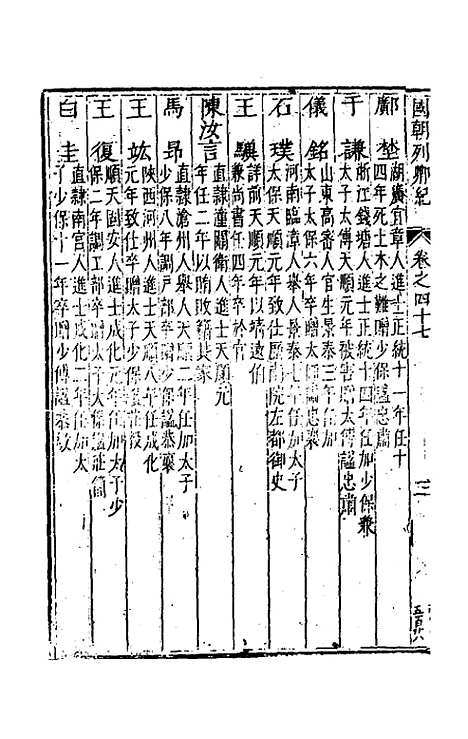 國朝列卿紀 卷之四十七
鄺埜 湖廣宜章人進士正統十一年任十
四年死土木之難贈少保諡忠肅
于謙 浙江錢塘人進士正統十四年任加少保兼
太子太傅天順元年被害贈太傅諡忠肅
儀銘 山東高密人官生景泰三年任加
太子太保六年卒贈太師諡忠襄
石璞 河南臨漳人舉人景泰七年任加太子
太保天順元年以致仕南院左都御史
王驥 詳前天順元年以靖遠伯
兼尚書任四年卒於官
陳汝言 直隸潼關衛人進士天順元
年任二年以賄敗籍其家
馬昂 直隸滄州人舉人天順二年任加太子
少保八年調戶部卒贈少保諡恭襄
王竑 陝西河州人進士天順八年任成化
元年致仕卒贈太子少保諡莊毅
王復 順天固安人進士成化元年任加太子少
保二年調工部卒贈太子太保諡莊簡
白圭 直隸南宮人進士成化二年任加太
子少保十一年卒贈少傅諡恭敏